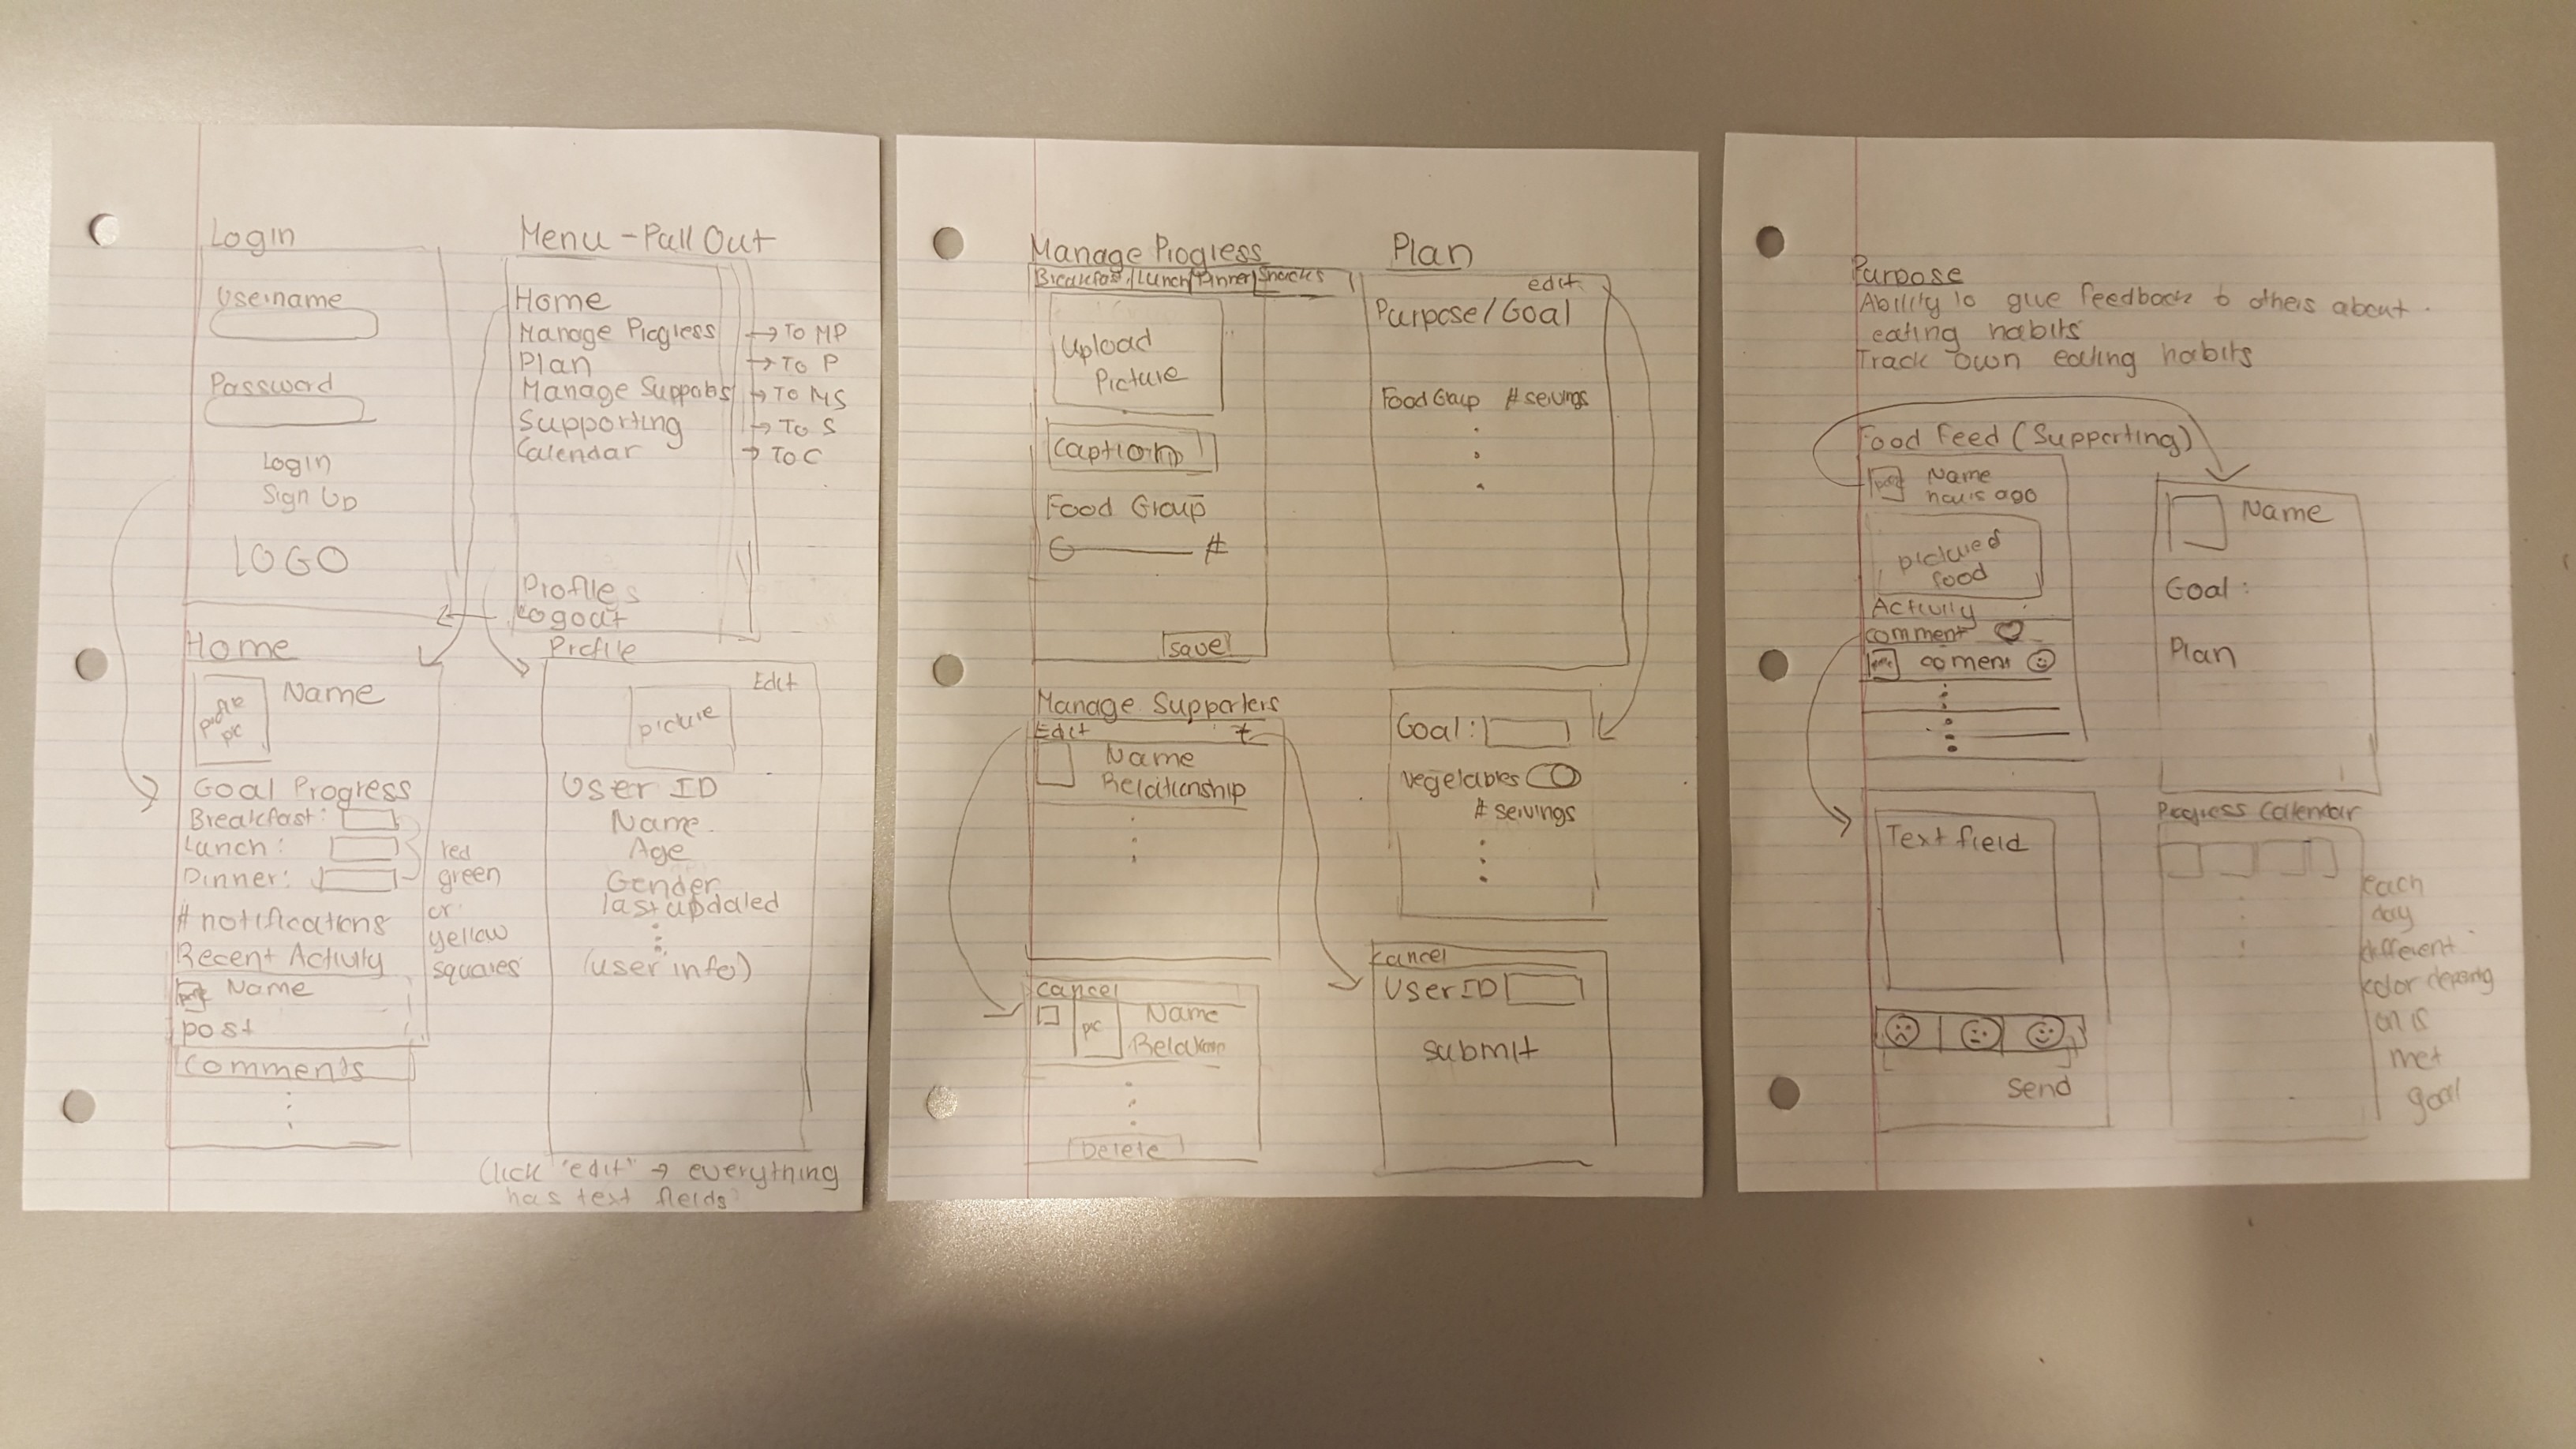 Login
Username
Password
Login
Sign Up
LOGO
Menu - Pull Out
Home
Manage Progress → To MP
Plan → To P
Manage → To MS
Supporting → To S
Calendar → To C
Profile
Logout
Home
profile pic
Name
Goal Progress
Breakfast:
Lunch:
Dinner:
red
green
or
yellow
squares
# notifications
Recent Activity
Name
post
Comments
Profile
Edit
picture
User ID
Name
Age
Gender
last updated
(user info)
Click "edit" → everything
has text fields
Manage Progress
Breakfast Lunch Dinner Snacks
Upload
Picture
Caption
Food Group
#
save
Plan
edit
Purpose/Goal
Food Group # servings
Manage Supporters
Edit +
Name
Relationship
Goal:
vegetables
# servings
cancel
pic
Name
Delete
cancel
User ID
submit
Purpose
Ability to give feedback to others about
eating habits
Track own eating habits
Food Feed (Supporting)
Name
hours ago
food
Activity
comment
coment
Name
Goal:
Plan
Text field
Send
Progress Calendar
each
day
different
color
met
goal